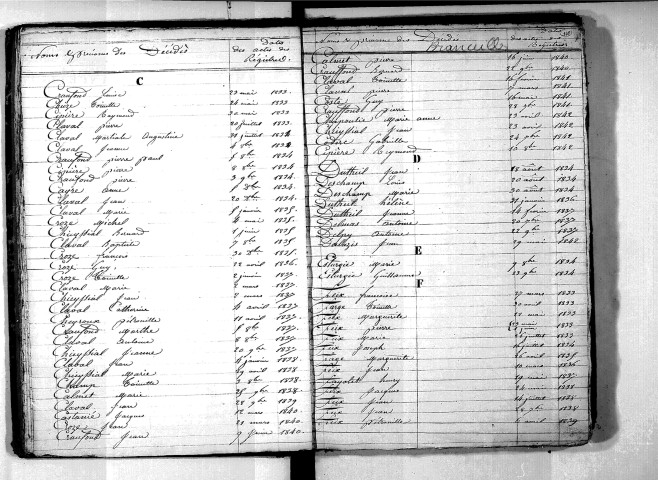 Noms & prénoms des Décédés
Dates des actes des Régistres.
C
Craufond Louise 23 mai 1833.
Chèze Toinette 24 mai 1833
Cipière Raymond 30 mai 1833
Claval pierre 20 juillet 1833
Claval Martiale Augustine 31 juillet 1834
Claval Jeanne 4 8bre 1834
Craufond pierre paul 6 8bre 1834
Cipière pierre 8 8bre 1834
Craufond pierre 3 9bre 1834
Cayre Anne 1834.
Claval Jean 20 Xbre 1834.
Claval Marie 5 janvier 1835.
Croze Michel 4 mai 1835.
Cheyssial Bernard 1 juin 1835
Claval Baptiste 7 8bre 1835
Croze François 30 Xbre 1835
Croze Guy 22 avril 1836.
Croze Toinette 2 janvier 1837.
Claval Marie 2 mars 1837.
Cheyssial Jean 2 mars 1837.
Claval Catherine 4 avril 1837
Cheyroux pétronille 11 avril 1837.
Craufond Marthe 1 8bre 1837.
Claval Antoine 8 8bre 1837.
Cheyssial Jeanne 20 9bre 1837.
Claval Jean 8 janvier 1838.
Cheyssial Marie 29 avril 1838
Champ Toinette 3 8bre 1838.
Calmet Marie 25 9bre 1838.
Claval Jean 28 9bre 1839
Castanié Jacques 12 mars 1840.
Croze Jean 21 mars 1840.
Craufond Jean 9 juin 1840.
Noms & prénoms des Décédés
Calmet pierre 16 juin 1840.
Craufond Bernard 22 9bre 1840.
Claval Toinette 16 février 1841
Claval pierre 7 mars 1841
Coste Guy 16 mai 1841.
Craufond pierre 28 9bre 1841.
Charpentier Marie anne 23 avril 1842
Cheyssial Jean 23 avril 1842
Codère Gabrielle 24 9bre 1842
Cipière Reymond 16 8bre 1842.
D
Dutheil Jean 18 août 1834.
Deschamp Louis 20 août 1834
Deschamp Marie 30 août 1834
Dutheil hélène 31 janvier 1836
Dutheil Jeanne 14 février 1837.
Delmas Antoine 20 1837.
Delpy Antoine 22 9bre 1837.
Dallezis Jean 29 mai 1842
E
Esturgie Marie 9 8bre 1834
Esturgie Guillaume 23 9bre 1834
F
Feix françoise 27 mars 1833
Farge Toinette 30 avril 1833
Feix Marguerite 22 mai 1833.
Feix pierre 23 mai 1833
Feix Marie juillet 1833
Feix Joseph juillet 1834
Farge Marguerite 26 avril 1835
Feix Jean 10 mars 1836
Fayolet henry 1837
Feix Jacques 24 mai 1838
Feix Jean 14 juillet 1838
Feix Jean 8bre 1838
Feix pétronille 2 avril 1839